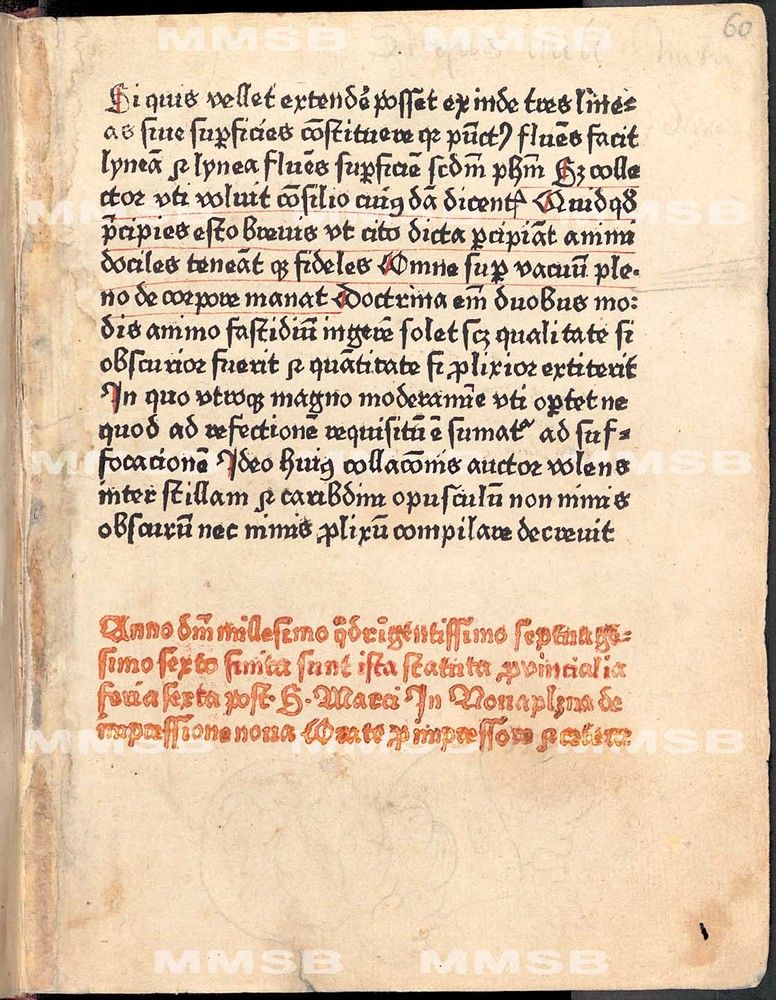 60
Si quis vellet extendẽ posset ex inde tres line⸗
as siue suꝑficies cõstituere qꝛ pũctꝯ fluẽs facit
lyneã ⁊ lynea fluẽs suꝑficiẽ scdm̃ phm̃ Sꝫ colle
ctor vti voluit cõsilio cuiꝯ dã dicentꝭ Quidqð
p̃cipies esto breuis vt cito dicta ꝑcipiãt animi
dociles teneãt qꝫ fideles Omne suꝑ vacuũ ple⸗
no de corpore manat Doctrina em̃ duobus mo⸗
dis animo fastidiũ ingerẽ solet scꝫ qualitate si
obscurior fuerit ⁊ quãtitate si ꝓlixior extiterit
In quo vtroqꝫ magno moderamĩe vti oꝑtet ne
quod ad refectionẽ requisitũ ẽ sumatᷣ ad suf⸗
focacionẽ Ideo huiꝯ collacõnis auctor volens
inter scillam ⁊ caribdim opusculũ non nimis
obscurũ nec nimis ꝓlixũ compilare decreuit
Anno dñi millesimo q̃dringentissimo septuage⸗
simo sexto finita sunt ista statuta ꝓuincialia
feria sexta post. S. Marci In Nouaplzna de
impressione noua Orate ꝓ impressore ⁊ cetera
MMSB MMSB
MMSB MMSB
MMSB MMSB
MMSB MMSB
MMSB MMSB